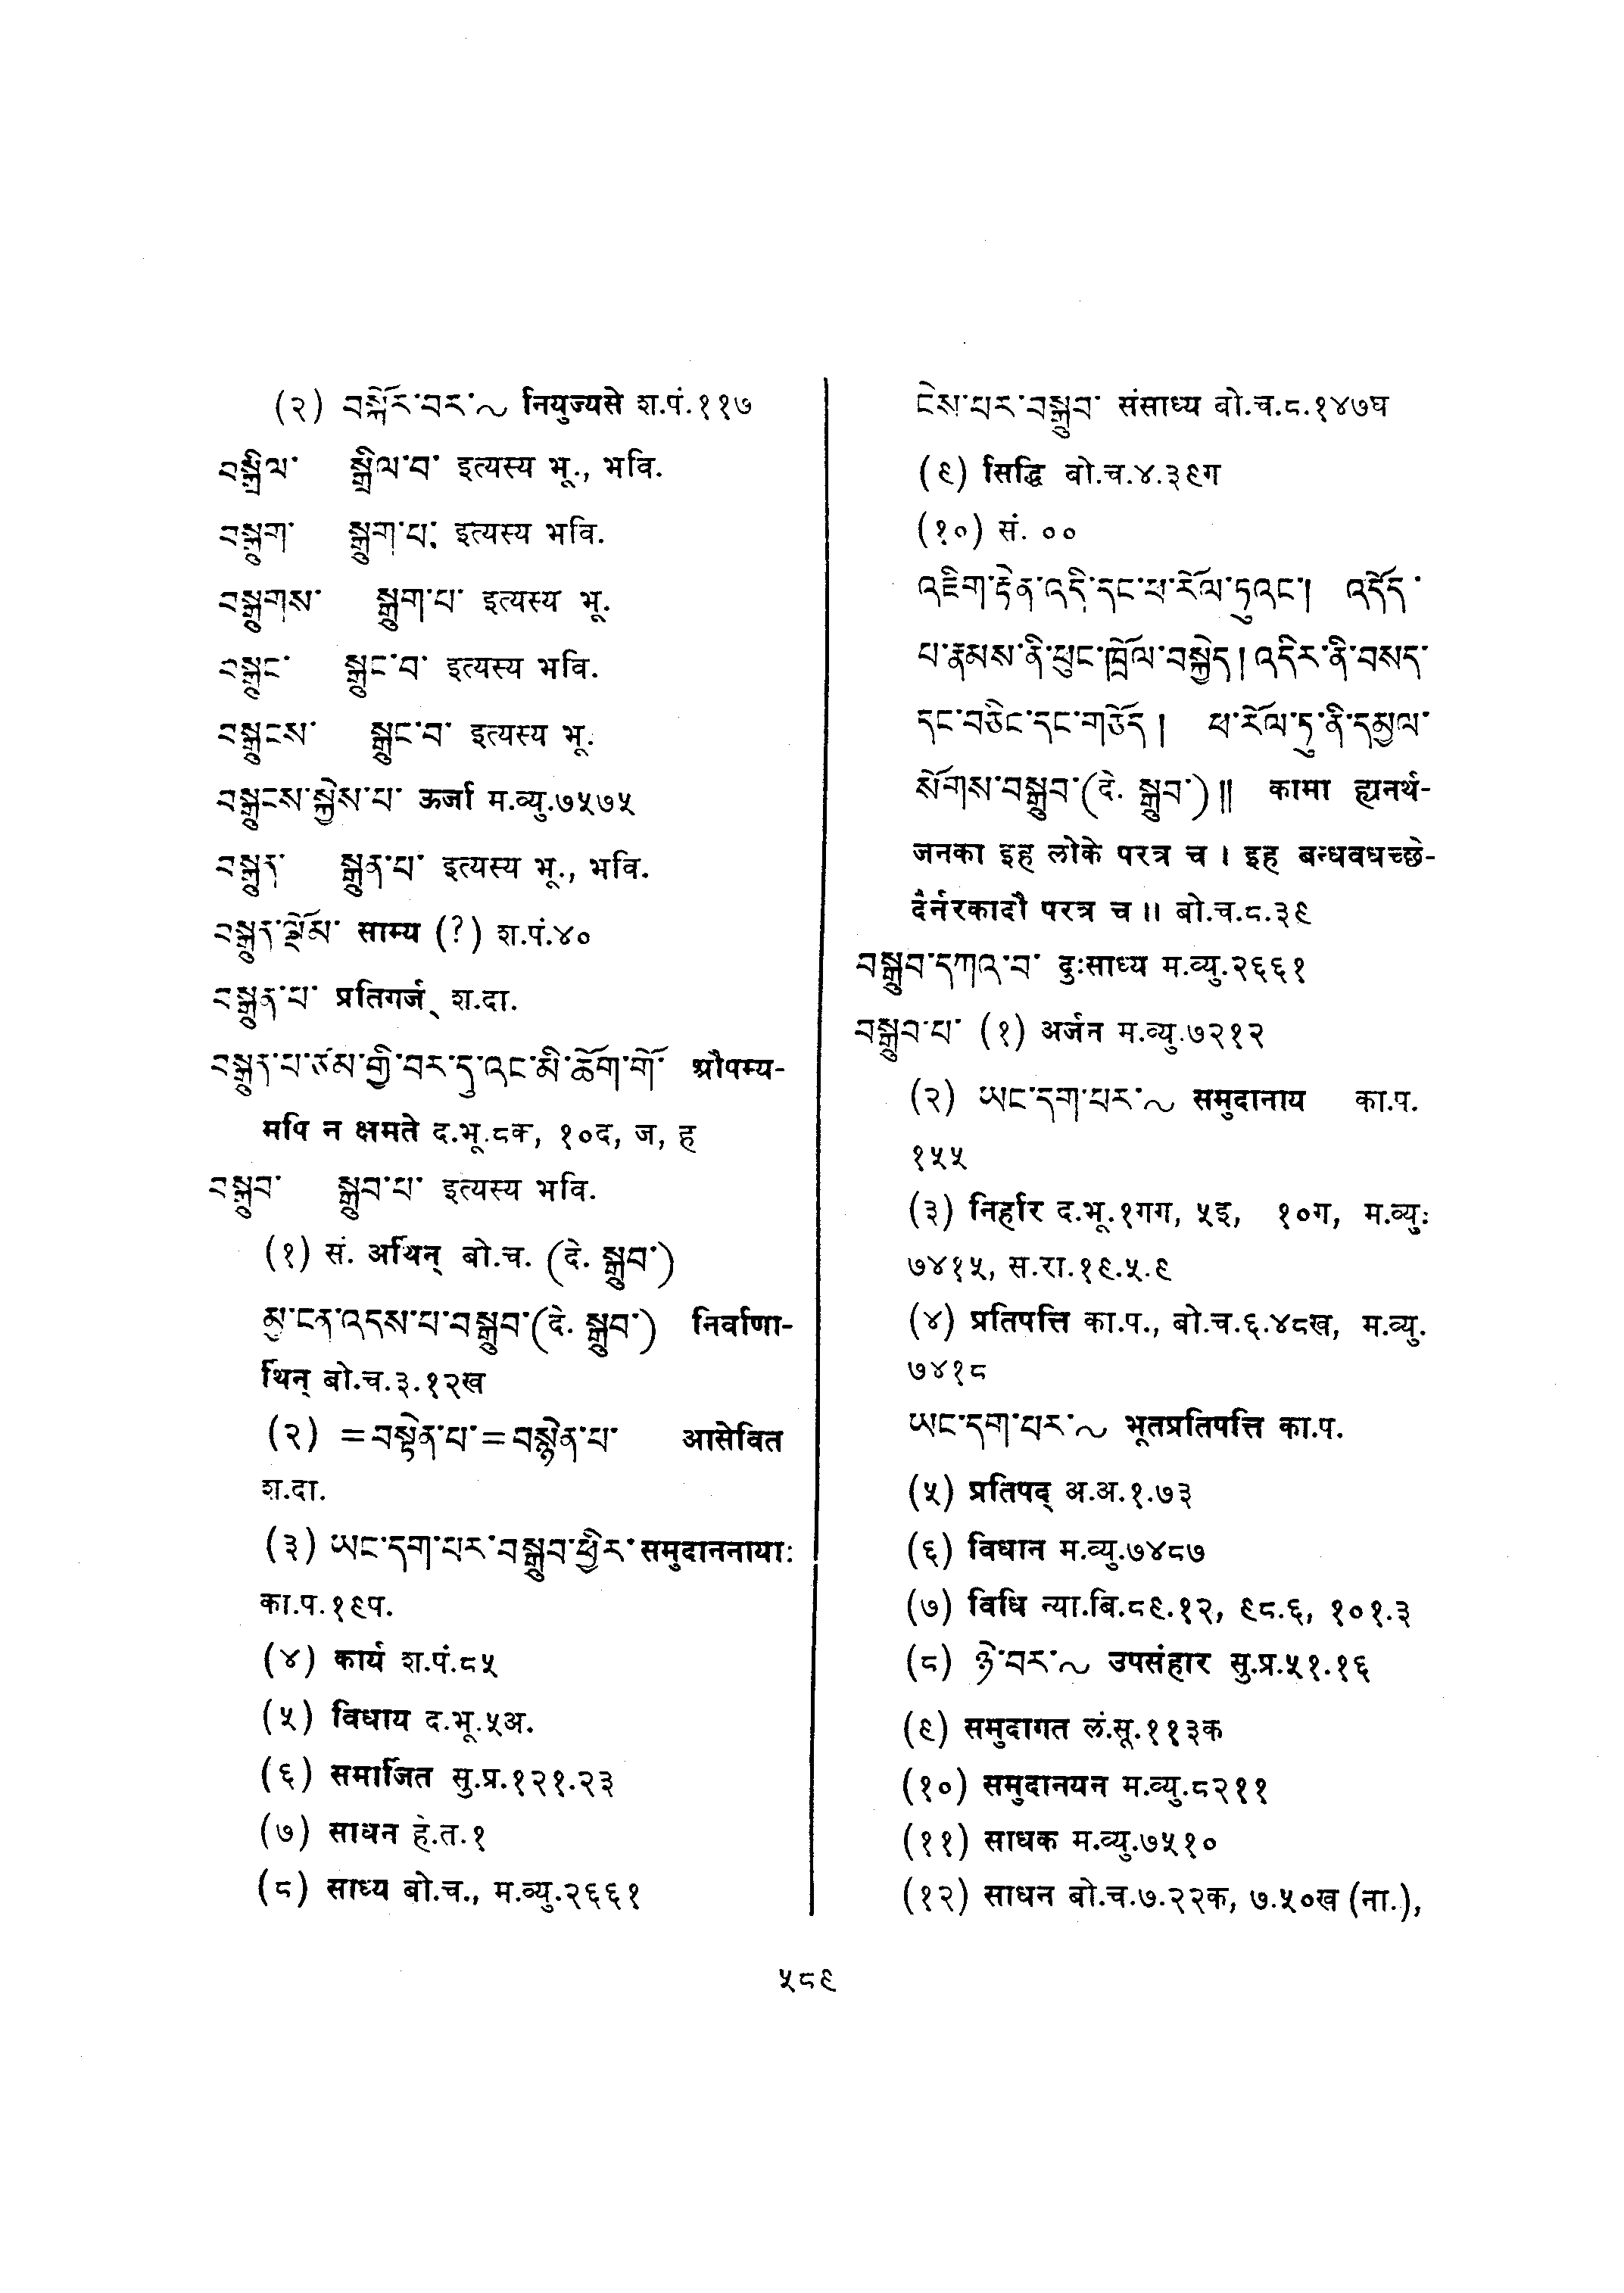 (२) བསྐོར་བར་~ नियुज्यसे श.पं.११७
བསྒྲིལ་ སྒྲིལ་བ་ इत्यस्य भू., भवि.
བསྒྲུག་ སྒྲུག་པ་ इत्यस्य भवि.
བསྒྲུགས་ སྒྲུག་པ་ इत्यस्य भू.
བསྒྲུང་ སྒྲུང་བ་ इत्यस्य भवि.
བསྒྲུངས་ སྒྲུང་བ་ इत्यस्य भू.
བསྒྲུངས་སྐྱེས་པ་ ऊर्जा म.व्यु.७५७५
བསྒྲུན་ སྒྲུན་པ་ इत्यस्य भू., भवि.
བསྒྲུན་ साम्य (?) श.पं.४०
བསྒྲུན་པ་ प्रतिगर्ज् श.दा.
བསྒྲུན་པ་ཙམ་གྱི་བར་དུ་འང་མི་ཆོག་གོ་ औपम्य-
मपि न क्षमते द.भू.८क, १०द, ज, ह
བསྒྲུབ་ སྒྲུབ་པ་ इत्यस्य भवि.
(१) सं. अर्थिन् बो.च. (दे. སྒྲུབ་)
མྱ་ངན་འདས་པ་བསྒྲུབ་(दे. སྒྲུབ་) निर्वाणा-
र्थिन् बो.च.३.१२ख
(२) =བསྟེན་པ་=བསྙེན་པ་ आसेवित
श.दा.
(३) ཡང་དག་པར་བསྒྲུབ་ཕྱིར་ समुदाननायाः
का.प.१९प.
(४) कार्य श.पं.८५
(५) विधाय द.भू.५अ.
(६) समार्जित सु.प्र.१२१.२३
(७) साधन हे.त.१
(८) साध्य बो.च., म.व्यु.२६६१
ངེས་པར་བསྒྲུབ་ संसाध्य बो.च.८.१४७घ
(९) सिद्धि बो.च.४.३९ग
(१०) सं. ००
འཇིག་རྟེན་འདི་དང་ཕ་རོལ་ཏུའང་། འདོད་
པ་རྣམས་ནི་ཕུང་ཁྲོལ་བསྐྱེད། འདིར་ནི་བསད་
དང་བཅིང་དང་གཅོད། ཕ་རོལ་ཏུ་ནི་དམྱལ་
སོགས་བསྒྲུབ་(दे. སྒྲུབ་)॥ कामा ह्यनर्थ-
जनका इह लोके परत्र च । इह बन्धवधच्छे-
दैर्नरकादौ परत्र च ॥ बो.च.८.३९
བསྒྲུབ་དཀའ་བ་ दुःसाध्य म.व्यु.२६६१
བསྒྲུབ་པ་ (१) अर्जन म.व्यु.७२१२
(२) ཡང་དག་པར་~ समुदानाय का.प.
१५५
(३) निर्हार द.भू.१गग, ५इ, १०ग, म.व्यु.
७४१५, स.रा.१९.५.९
(४) प्रतिपत्ति का.प., बो.च.६.४८ख, म.व्यु.
७४१८
ཡང་དག་པར་~ भूतप्रतिपत्ति का.प.
(५) प्रतिपद् अ.अ.१.७३
(६) विधान म.व्यु.७४८७
(७) विधि न्या.बि.८९.१२, ९८.६, १०१.३
(८) ཉེ་བར་~ उपसंहार सु.प्र.५१.१६
(९) समुदागत लं.सू.११३क
(१०) समुदानयन म.व्यु.८२११
(११) साधक म.व्यु.७५१०
(१२) साधन बो.च.७.२२क, ७.५०ख (ना.),
५८९